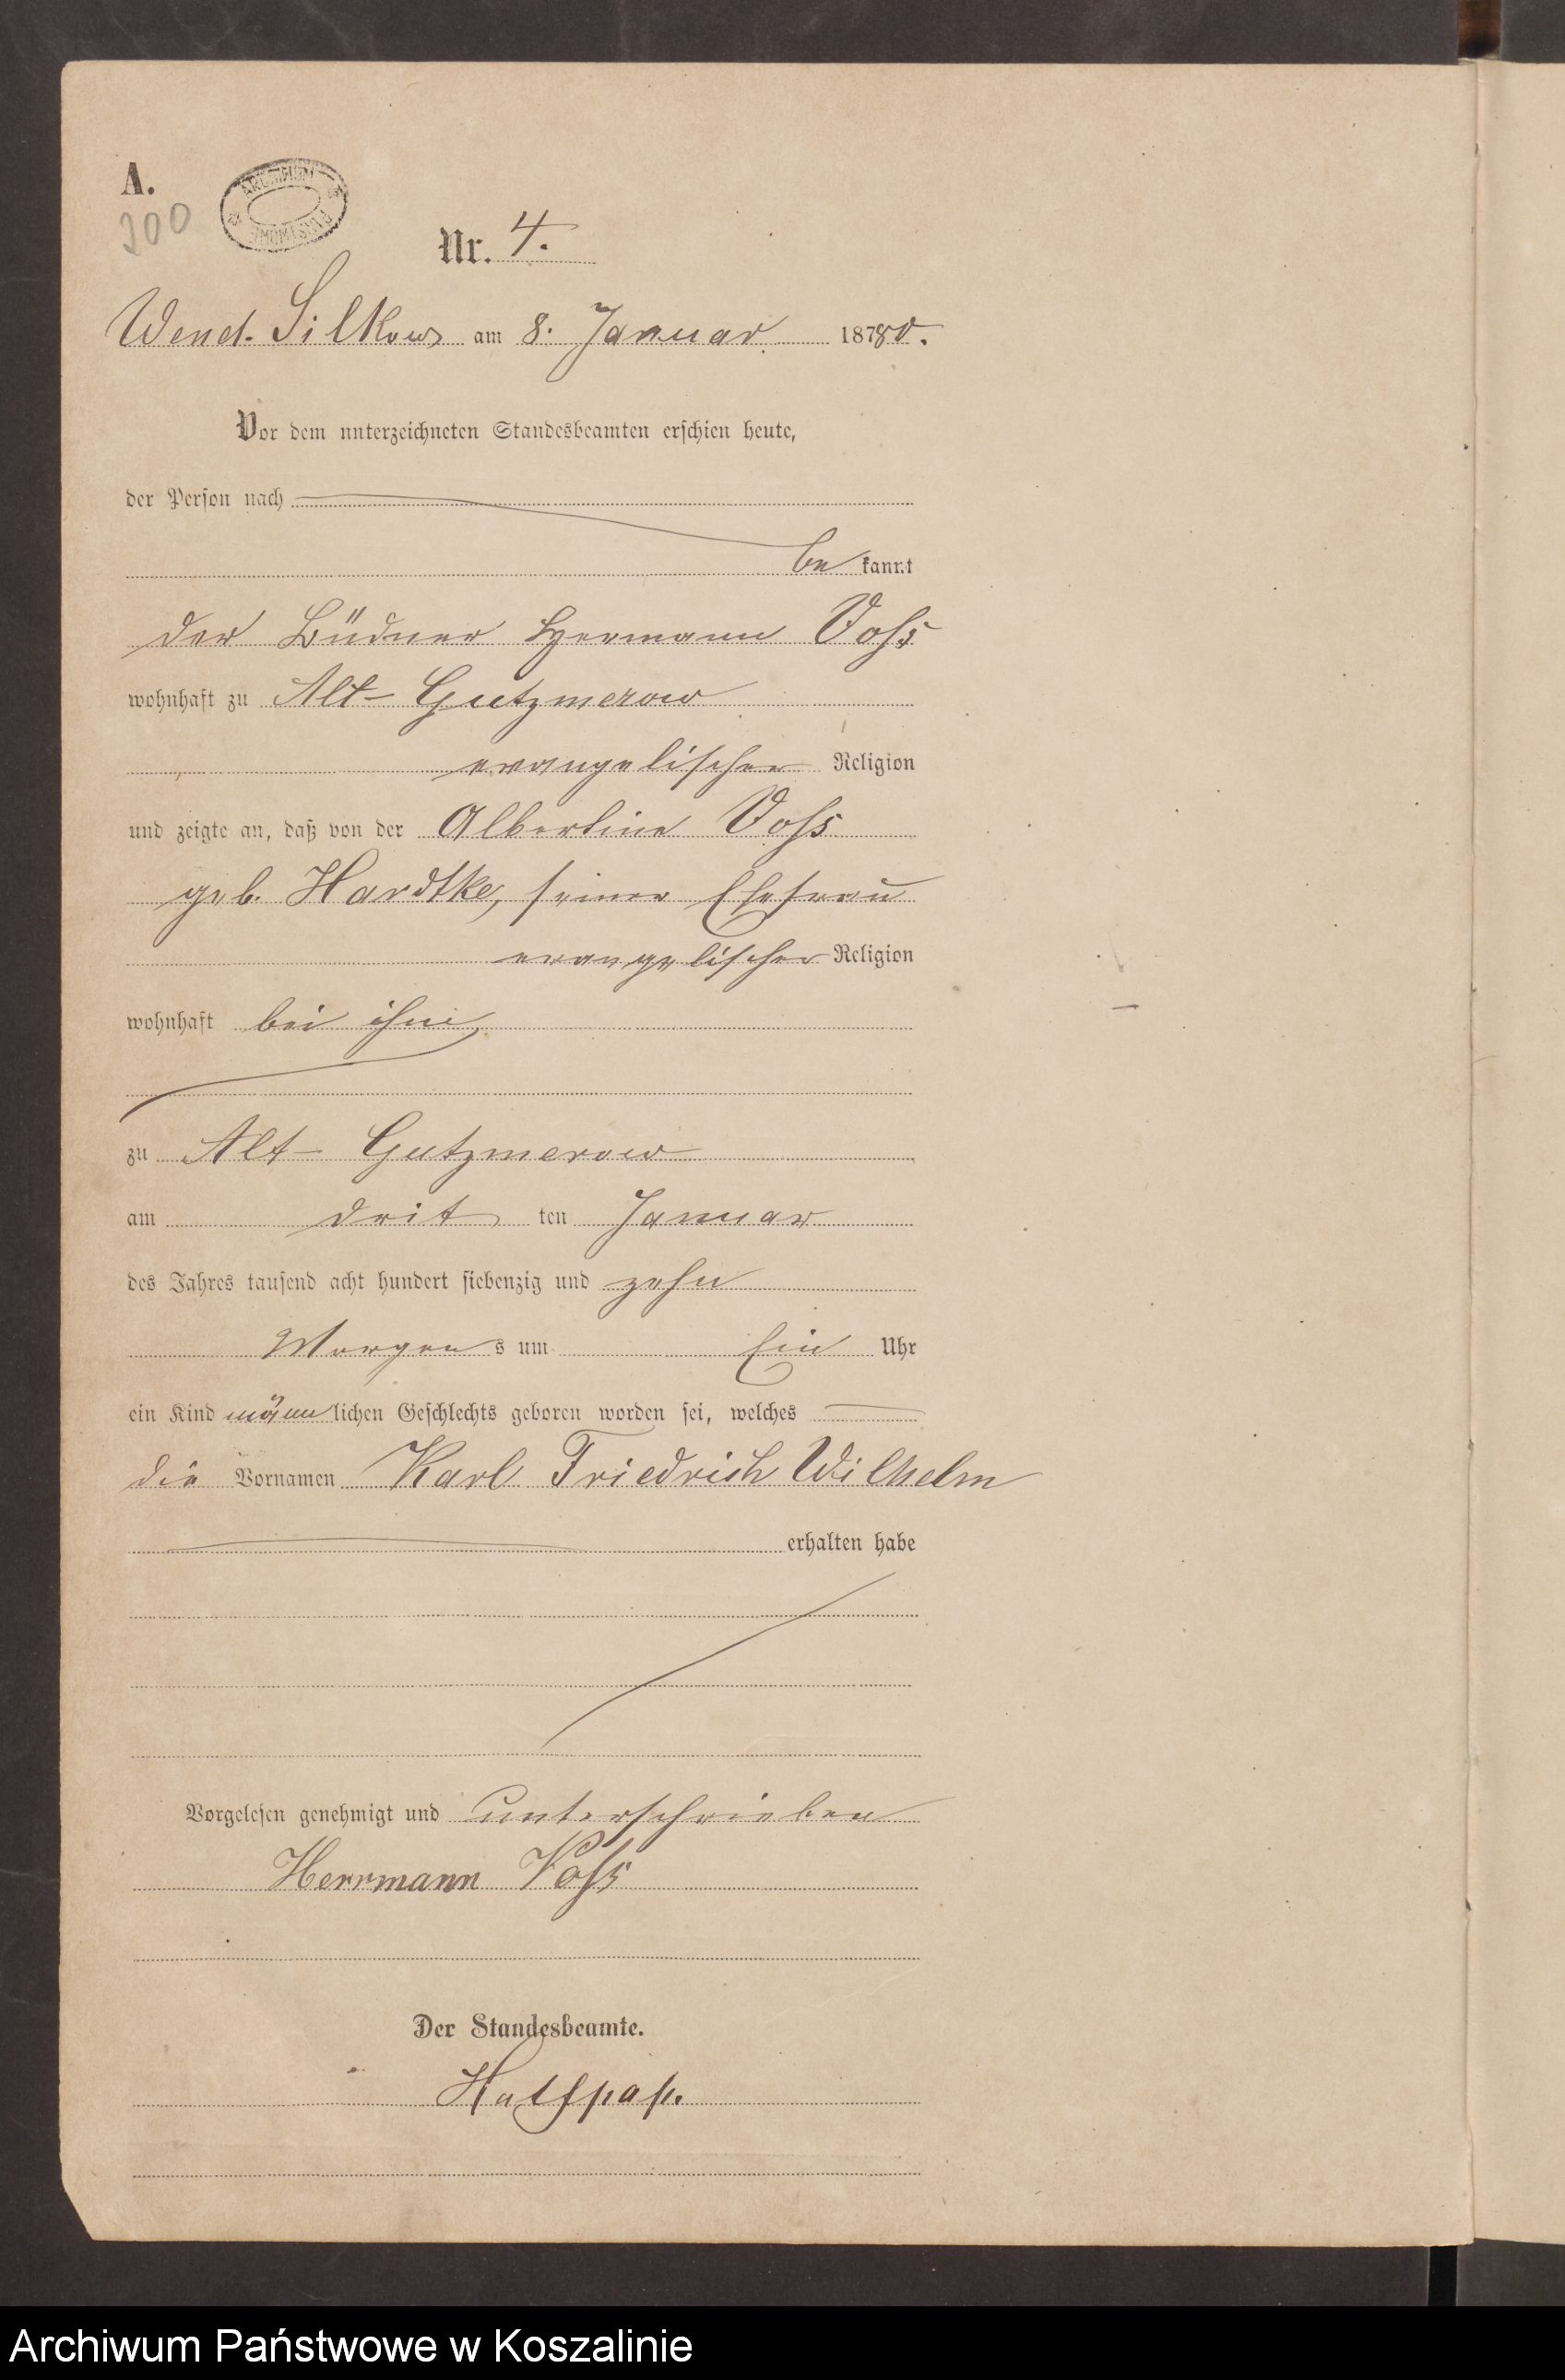 A.
300
ARCHIWUM
Nr. 4.
Wend. Silkow am 8. Januar 18780.
Vor dem unterzeichneten Standesbeamten erschien heute,
der Person nach
be kannt
der Büdner Hermann Voß
wohnhaft zu Alt-Gutzmerow
evangelischer Religion
und zeigte an, daß von der Albertine Voß
geb. Hardtke, seiner Ehefrau
evangelischer Religion
wohnhaft bei ihm,
zu Alt-Gutzmerow
am drit ten Januar
des Jahres tausend acht hundert siebenzig und zehn
Morgen s um Ein Uhr
ein Kind männ lichen Geschlechts geboren worden sei, welches
die Vornamen Karl Friedrich Wilhelm
erhalten habe
Vorgelesen genehmigt und unterschrieben
Herrmann Voß
Der Standesbeamte.
Archiwum Państwowe w Koszalinie